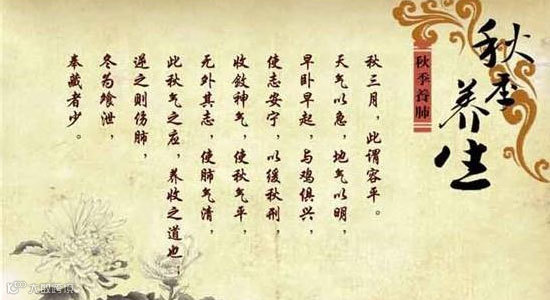 秋季养生
秋季养肺
秋三月，此谓容平。
天气以急，地气以明，
早卧早起，与鸡俱兴，
使志安宁，以缓秋刑，
收敛神气，使秋气平，
无外其志，使肺气清，
此秋气之应，养收之道也；
逆之则伤肺，
冬为飧泄，
奉藏者少。